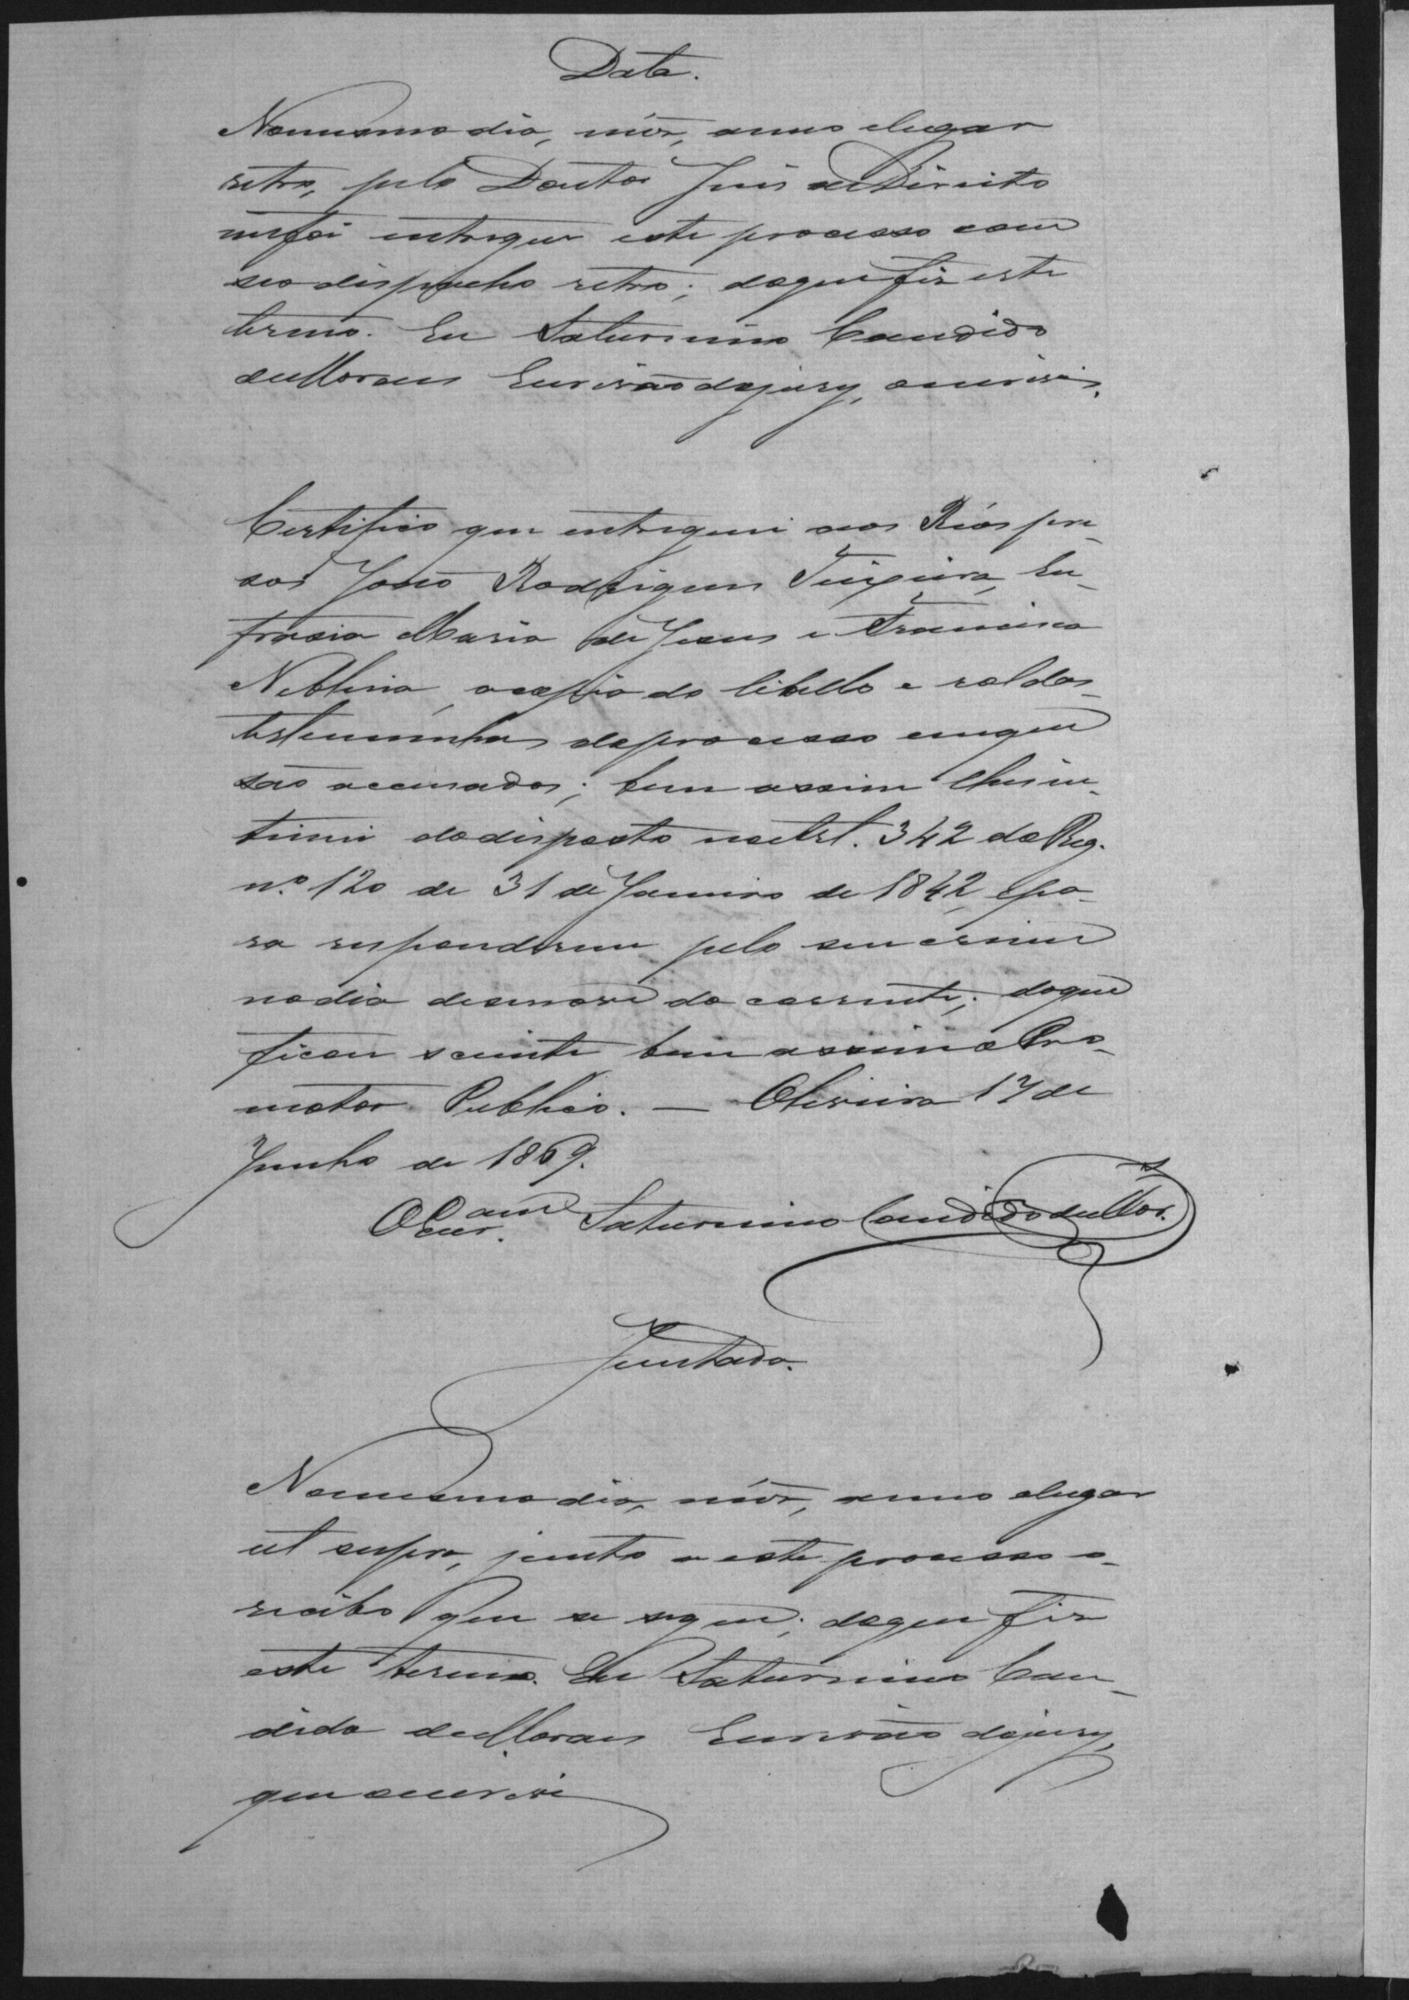 Data.
Nomesmo dia, mez, anno elugar
retro, pelo Doutor Juis de Direito
mefoi entregue este processo com
seo despacho retro; doque fiz este
termo. Eu Saturnino Candido
deMoraes Escrivão dojury, oescrivi.
Certifico que entreguei aos Réos pre_
sos João Rodrigues Teixeira, Eu_
frasia Maria de Jesus e Francisca
Neblina, acopia do libello e rol das
testemunhas doprocesso emque
são accusados; bem assim lhes in_
timei dodisposto noArt. 342 do Reg.
nº 120 de 31 de Janeiro de 1842, epa_
ra responderem pelo seu crime
nodia desenove do corrente; doque
ficou sciente bem assim o Pro_
motor Publico. — Oliveira 17 de
Junho de 1869.
O Escr.am Saturnino Candido deMor.
Juntada.
Nomesmo dia, mez, anno elugar
ut supra, junto a este processo o
recibo que se segue; doque fiz
este termo. Eu Saturnino Can_
dido deMoraes Escrivão dojury,
que oescrivi